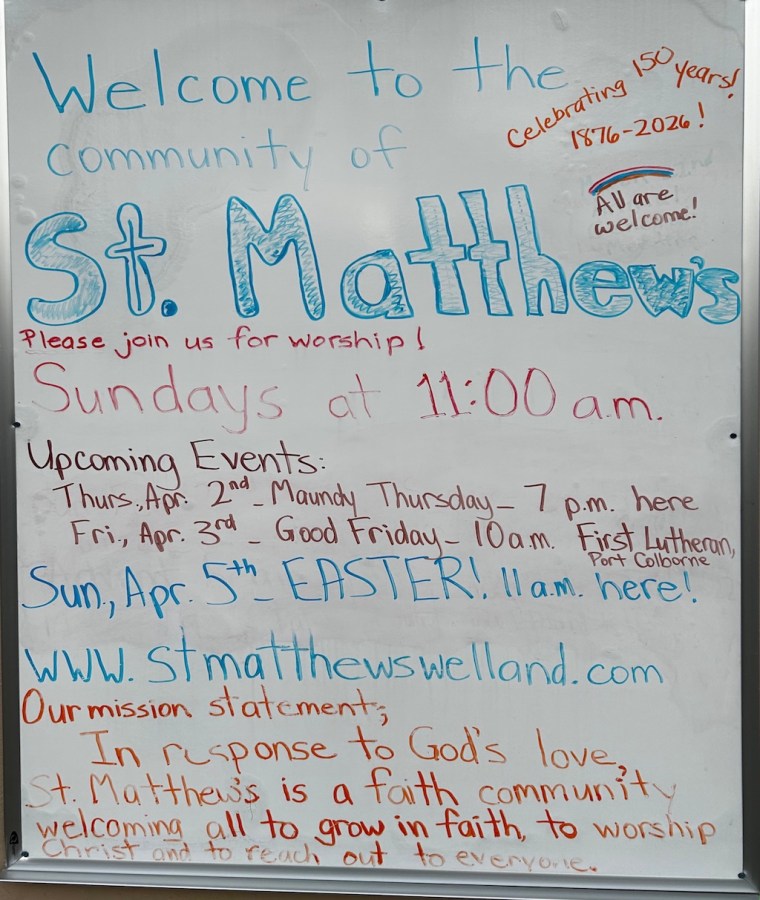 Welcome to the
community of
Celebrating 150 years!
1876-2026!
All are
welcome!
St. Matthew's
Please join us for worship!
Sundays at 11:00 a.m.
Upcoming Events:
Thurs., Apr. 2nd - Maundy Thursday - 7 p.m. here
Fri., Apr. 3rd - Good Friday - 10 a.m. First Lutheran,
Port Colborne
Sun., Apr. 5th - EASTER! 11 a.m. here!
www.stmatthewswelland.com
Our mission statement;
In response to God's love,
St. Matthew's is a faith community
welcoming all to grow in faith, to worship
Christ and to reach out to everyone.